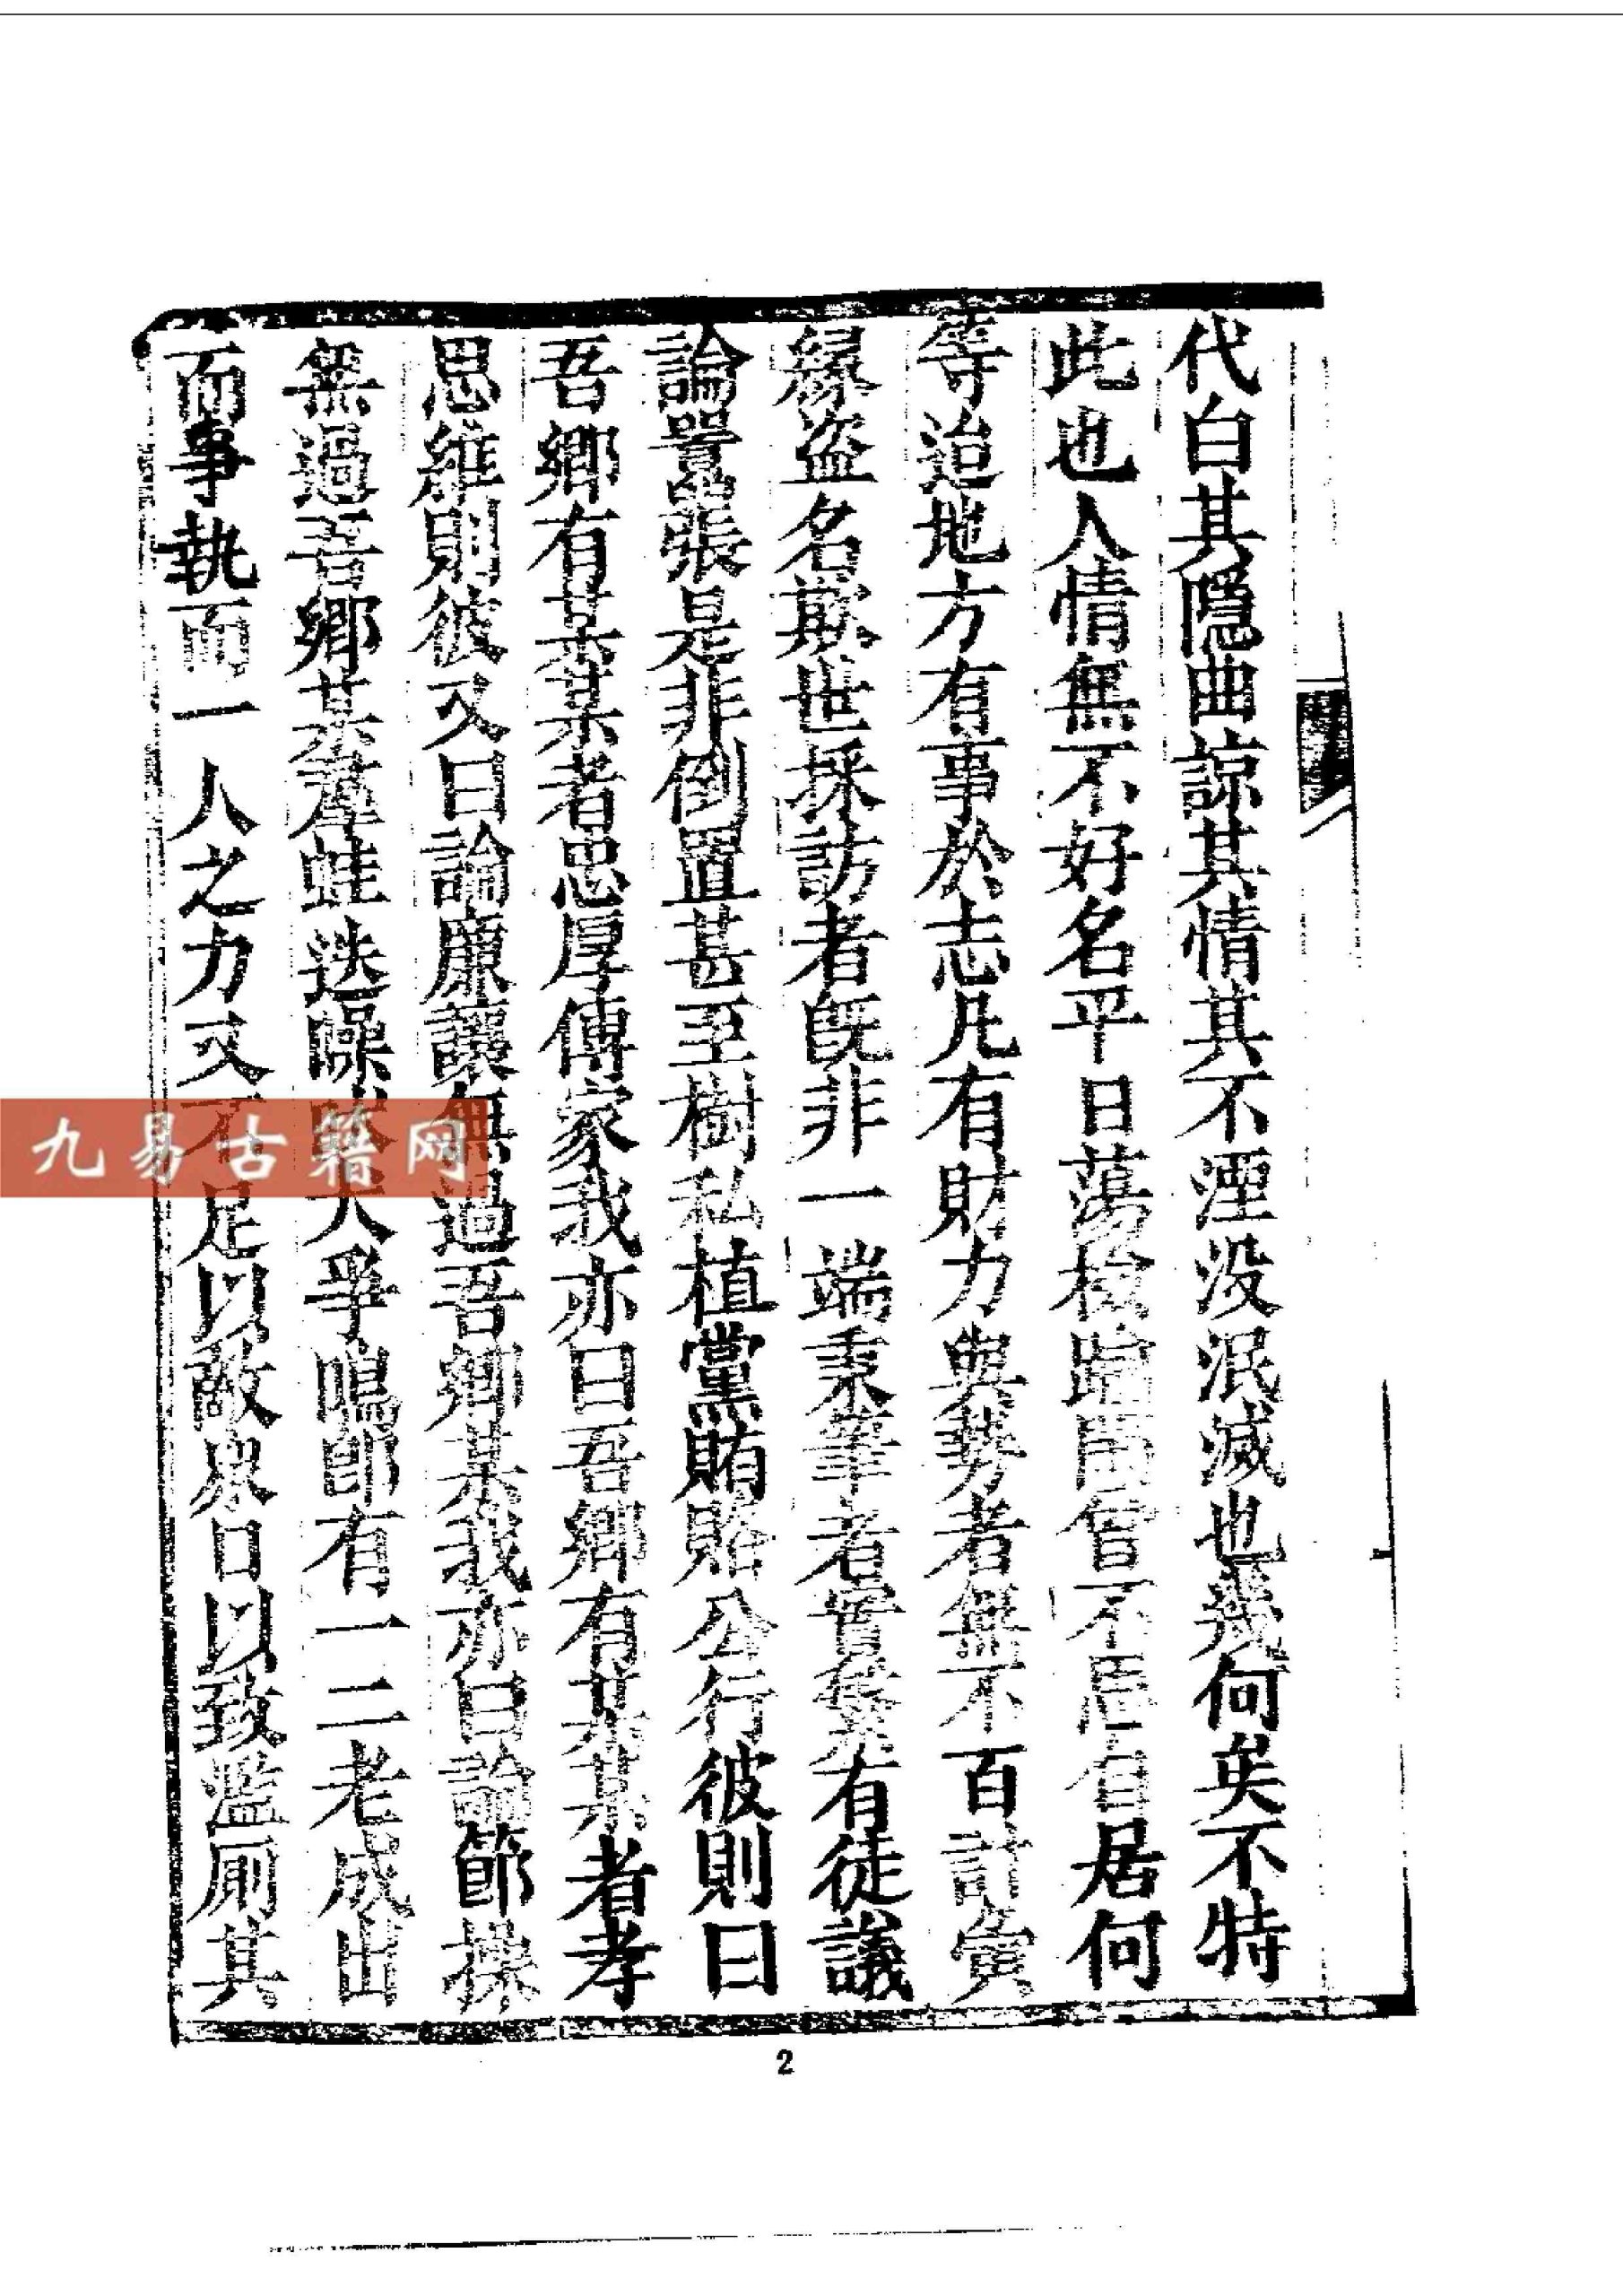 代白其隠曲諒其情其不湮没泯滅也幾何矣不特
此也人情無不好名平日蕩檢踰閑曾不思自居何
等迨地方有事於志凡有財力與勢者無不百計夤
緣盜名欺世採訪者既非一端秉筆者實繁有徒議
論囂張是非倒置甚至樹私植黨賄賂公行彼則曰
吾鄉有某某者忠厚傳家我亦曰吾鄉有某某者孝
思維則彼又曰論廉讓無過吾鄉某我亦曰論節操
無過吾鄉某羣蛙迭噪犬爭鳴即有一二老成出
而事執而一人之力又不足以敵衆口以致濫厠其
九易古籍网
2